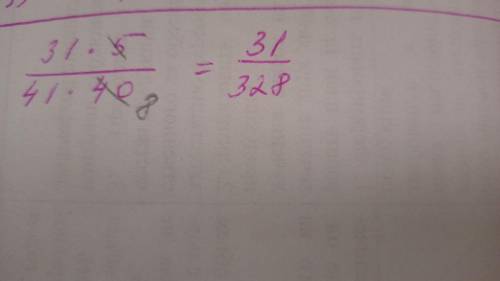 31 · 5
41 · 40 8
= 31
328